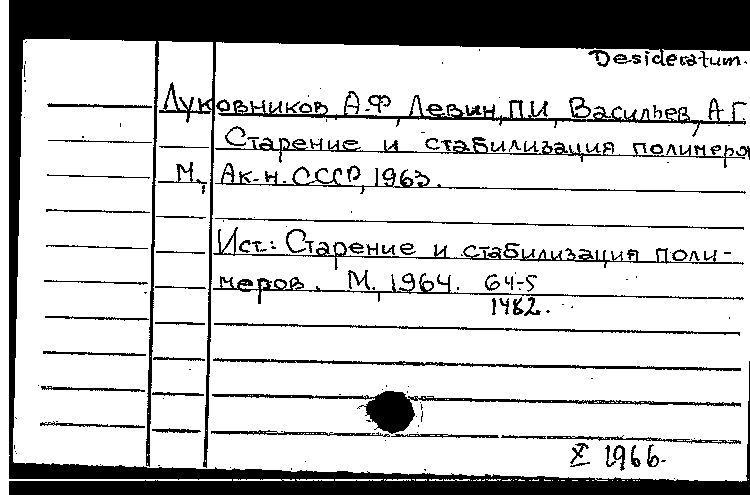 Desideratum.
Луковников, А.Ф., Левин, П.И, Васильев, А.Г.
Старение и стабилизация полимеров
М., Ак-н. СССР, 1963.
Ист.: Старение и стабилизация поли-
меров. М., 1964. 64-5
1482.
X 1966.